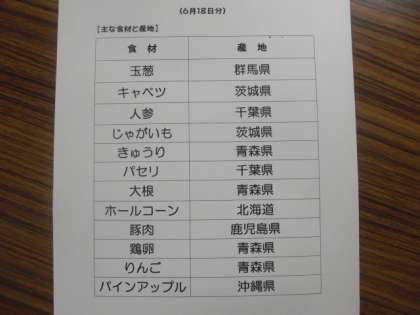 (6月18日分)
【主な食材と産地】
食材 産地
玉葱 群馬県
キャベツ 茨城県
人参 千葉県
じゃがいも 茨城県
きゅうり 青森県
パセリ 千葉県
大根 青森県
ホールコーン 北海道
豚肉 鹿児島県
鶏卵 青森県
りんご 青森県
パインアップル 沖縄県